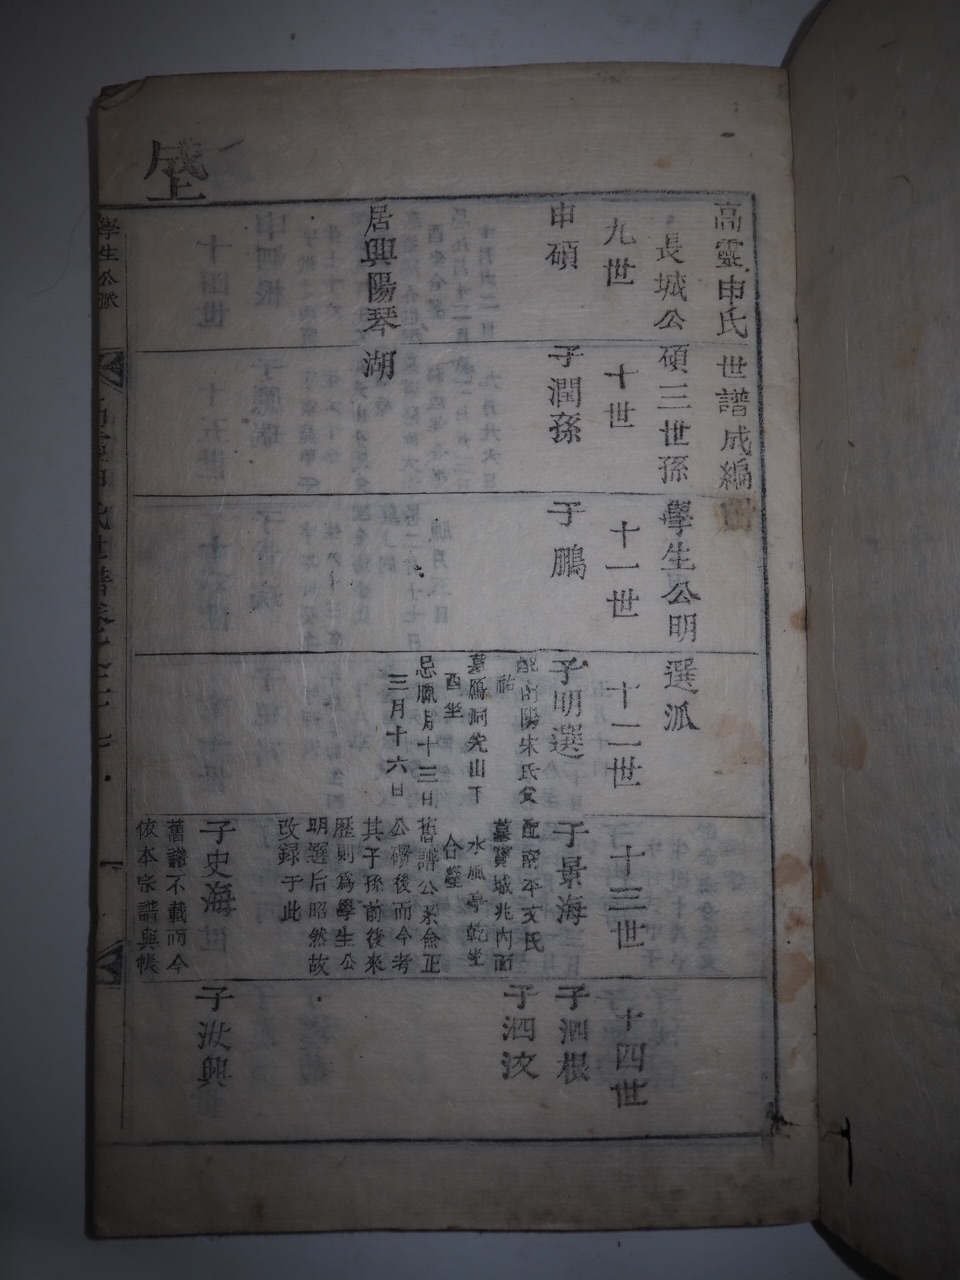 高靈申氏世譜成編
長城公碩三世孫學生公明選派
九世
十世
十一世
十二世
十三世
十四世
申碩
居興陽琴湖
子潤孫
子鵬
子明選
配南陽宋氏父
祐
墓鷹洞先山下
酉坐
忌臘月十三日
三月十六日
子景海
配南平文氏
墓寶城兆內面
水風亭乾坐
合塋
舊譜公系僉正
公礀後而今考
其子孫前後來
歷則爲學生公
明選后昭然故
改録于此
子史海
舊譜不載而今
依本宗譜與帳
子泗根
子泗汶
子汶興
學生公派